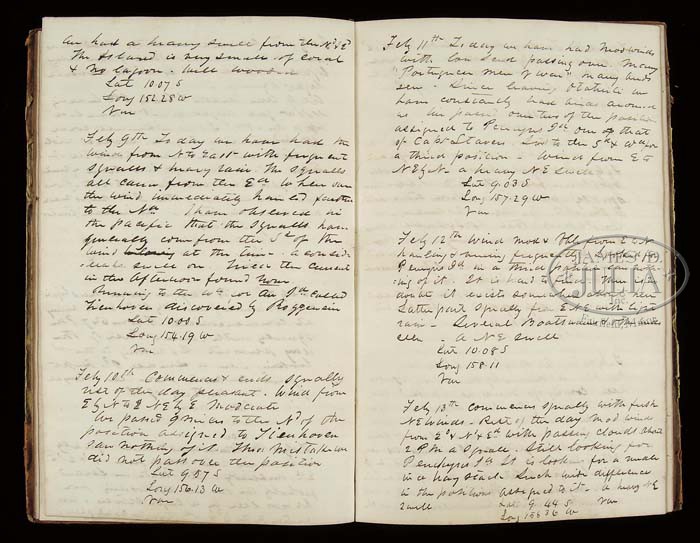 an had a heavy swell from the Nd & Ed
The Island is very small of coral
& no lagoon. Well wooded
Lat 10.07 S
Long 152.28 W
Var
Feby 9th To day we have had the
wind from N to East with frequent
squalls & heavy rain. The squalls
all came from the Ed when over
the wind immediately hauled farther
to the Nd I have observed in
the Pacific that the squalls have
generally come from the Sd of the
wind at the time - a consid-
erable swell on. Since the current
in the Afternoon found
Running to the Wd for an Isd called
Tienhoven discovered by Roggewein
Lat 10.00 S
Long 154.19 W
Var
Feby 10th Commences & ends squally
rest of the day pleasant. Wind from
E by N to NE by E Moderate
We passed 9 miles to the Nd of the
position assigned to Tienhoven
saw nothing of it. Those mistaken
did not pass over the position
Lat 9.57 S
Long 156.13 W
Var
Feby 11th To day we have had Mod winds
with low scud passing over. Many
"Portuguese men of War" many birds
seen - Since leaving Otahiti we
have constantly had birds around
us. We passed one two of the position
assigned to Penrhyns Isd one of that
of Capt Stavers. Stood to the Sd & Wd for
a third position - Wind from E to
NE by N a heavy NE Swell
Lat 9.03 S
Long 157.29 W
Var
Feby 12th Wind Mod & from E N
hauling & running frequently
Penrhyns Isd in a third position
ing of it. It is hard to find
doubt it exists somewhere
Latter part squally from ENE with light
rain - Several Boats
seen - a NE swell
Lat 10.08 S
Long 158.11
Var
Feby 13th commences squally with fresh
NE winds - Rest of the day Mod wind
from Ed & Nd & Ed with passing clouds about
2 PM a squall. Still looking for
Penrhyns Isd It is looking for a needle
in a hay stack. Such wide difference
in the positions assigned to it - a heavy NE
swell
Lat 9 44 S Var
Long 158 36 W
JAMES D.
JULIA
INC.
Fairfield, Maine